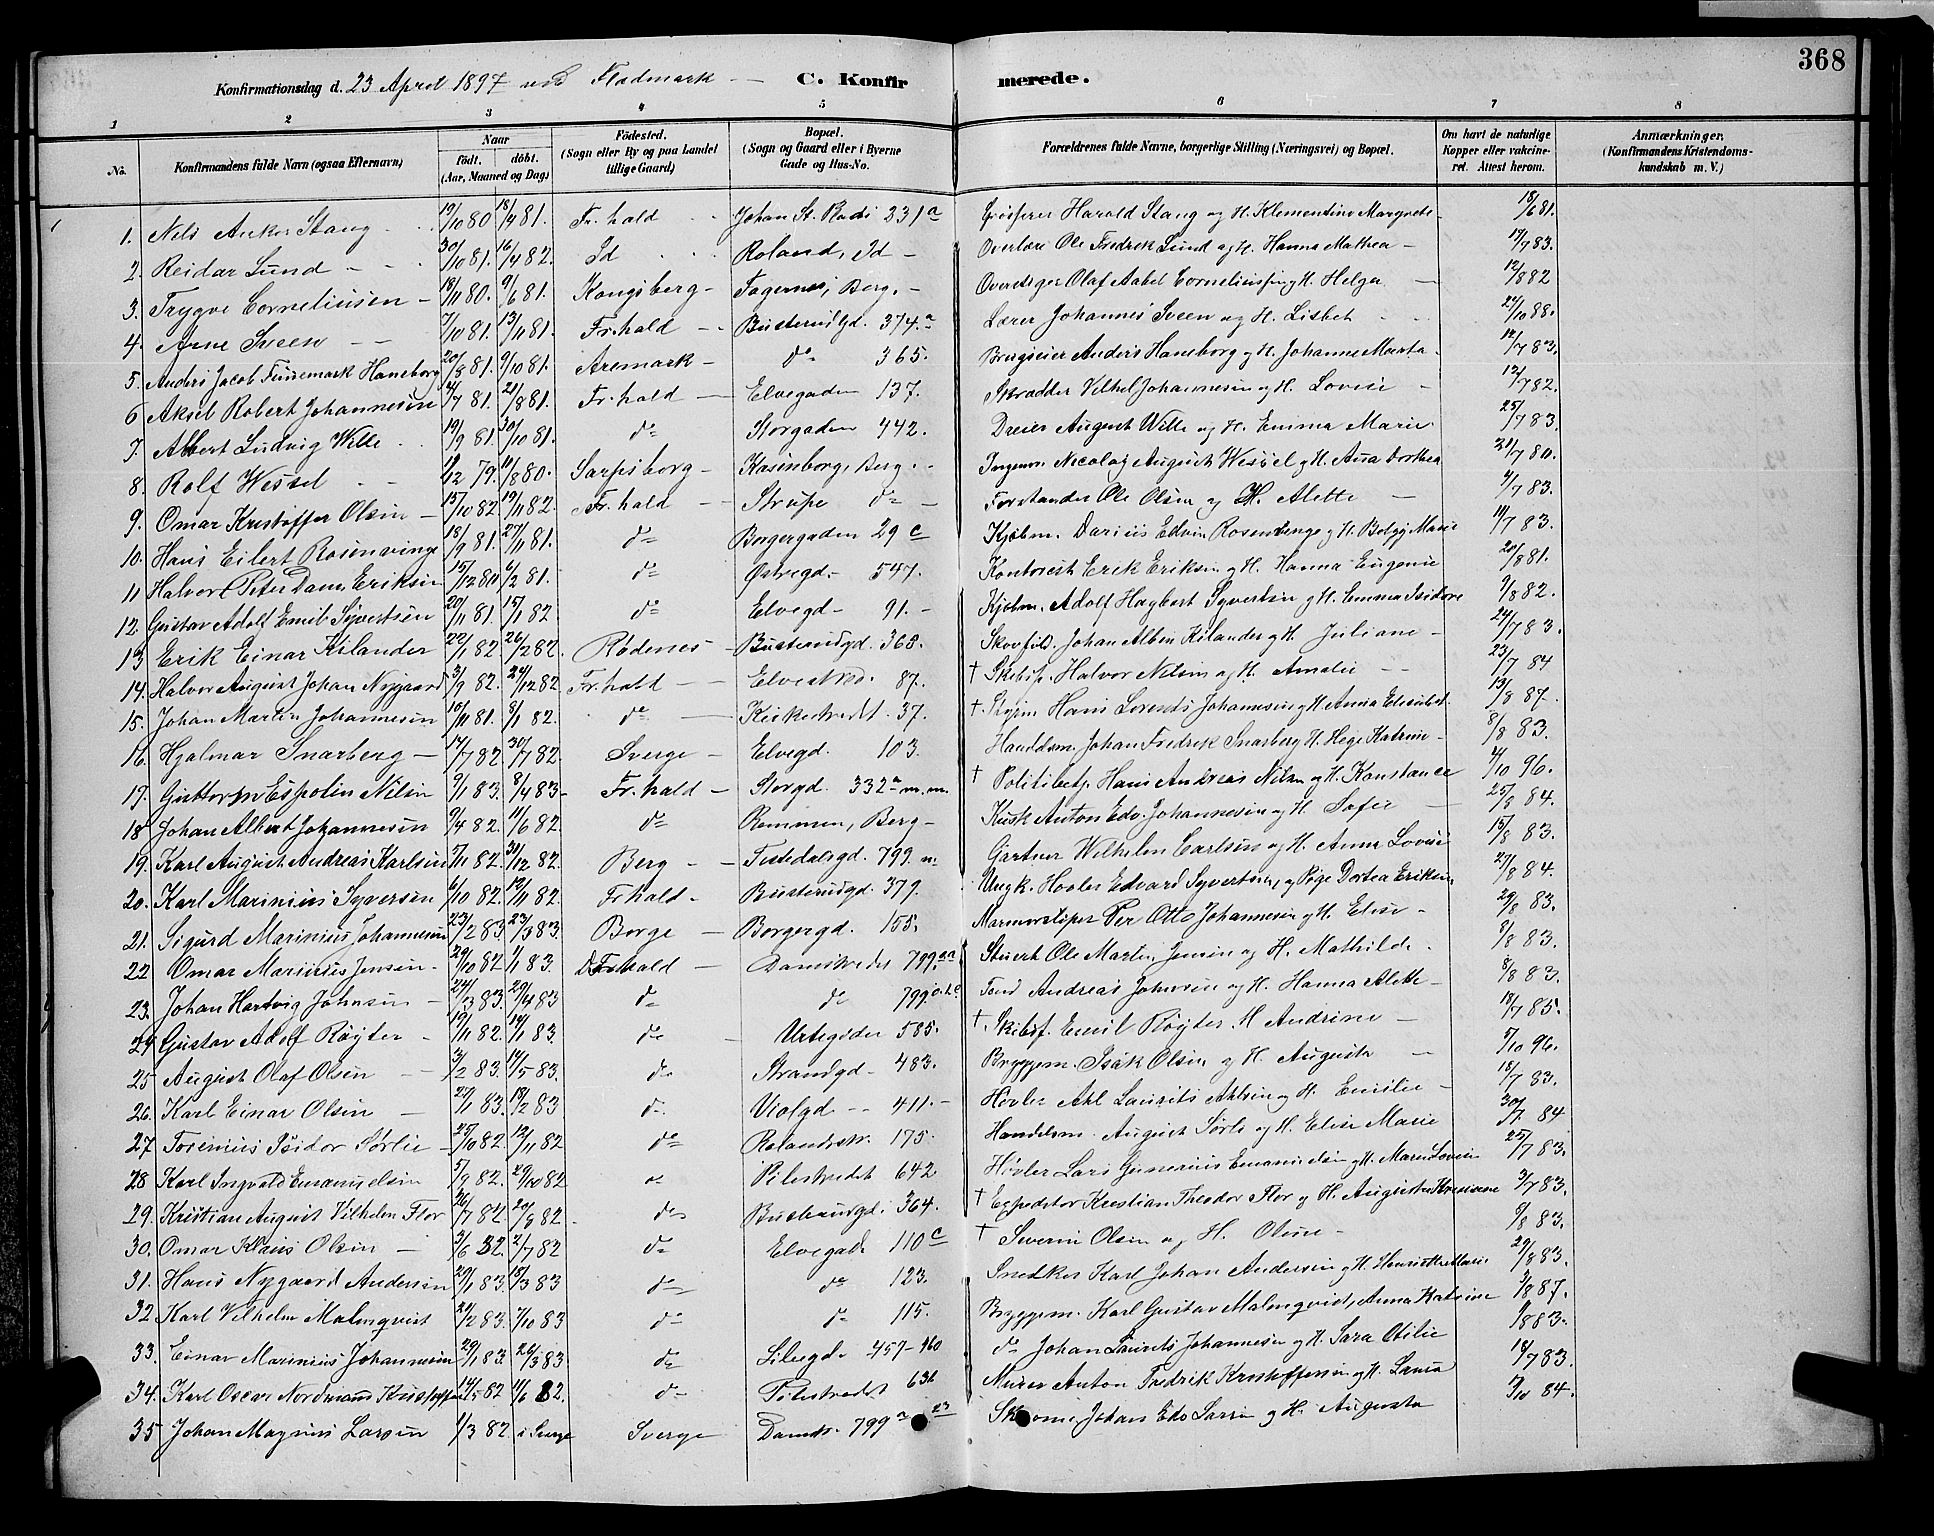 368
Konfirmationsdag d. 23 April 1897 ved Flodmark — C. Konfirmerede.
1 2 3 4 5 6 7 8
No. Konfirmandens fulde Navn (ogsaa Efternavn) Naar født. døbt. (Aar, Maaned og Dag) Födested. (Sogn eller By og paa Landet tillige Gaard) Bopæl. (Sogn og Gaard eller i Byerne Gade og Hus-No. Forældrenes fulde Navne, borgerlige Stilling (Næringsvei) og Bopæl. Om havt de naturlige Kopper eller vakcineret. Attest herom. Anmærkninger. (Konfirmandens Kristendomskundskab m. V.)
1. Nils Anker Stang 19/10 80 18/4 81. Fr.hald Johan St. Plads 231a Harald Stang og H. Klementine Margrete 18/6 81.
2. Reidar Lund 30/10 81. 16/4 82. Id Roland, Id Overlær. Ole Fredrik Lund og H. Hanna Mathea 17/7 83.
3. Trygve Corneliusen 18/11 80. 9/6 81. Kongsberg Berg. Olaf Aabel Corneliussen og H. Helga 12/8 82
4. Arne Sveen 7/10 81. 13/11 81. Fr.hald Busterudgd. 374.a Lærer Johannes Sveen og H. Lisbet 24/10 88.
5. Anders Jacob Haneborg 20/8 81. 9/10 81. Aremark do 365. Brugseier Anders Haneborg og H. Johanne Marta 12/7 83.
6 Aksel Robert Johannesen 4/7 81. 21/8 81. Fr.hald Elvegaden 137. Skrædder Vilhel Johannesen og H. Lovise 12/7 82.
7. Albert Ludvig Wille 19/9 81. 30/10 81. do Storgaden 442. Dreier August Wille og H. Emma Marie 25/7 83.
8. Rolf Wessel Sarpsborg Berg. Nicolay August Wessel og H. Ana Dorthea 21/7 80.
9. Omar Kristoffer Olsen 15/10 82. 19/11 82. Fr.hald Strupe do Forstander Ole Olsen og H. Alette 4/7 83.
10. Hans Eilert Rosenvinge 18/9 81. 27/11 81. do Borgergaden 29 c Kjøbm. Darius Edvin Rosenvinge og H. Marie 19/7 83.
11 Halvor Peter Dam Eriksen 15/12 80 6/2 81. do Østregd. 547. Kontorist Erik Eriksen og H. Hanna Eugenie 20/8 81.
12. Gustav Adolf Emil Syvertsen 20/11 81. 15/1 82 do Elvegd. 91. Kjøbm. Adolf Hagbert Syvertsen og H. Emma Isidore 9/8 82.
13 Erik Einar Kilander 22/1 82. 26/2 82. Rødenes Busterudgd. 368. Skovfd. Johan Albin Kilander og H. Juliane 24/7 83.
14. Halvor August Johan Nygaard 3/9 82. 24/12 82 Fr.hald Elvestræd. 87. † Skibsf. Halvor Nilsen og H. Amalie 23/7 84
15. Johan Martin Johannesen 10/11 81. 8/1 82. do Kirkestrædet 37. † Hans Lorents Johannesen og H. Anna Elisabet 13/8 87.
16. Hjalmar Snarberg 14/7 82 30/7 82. Sverge Elvegd. 103. Handelsm. Johan Fredrik Snarberg H. Hege Katrine 8/8 83.
17. Guttorm Espolin Nilsen 9/1 83. 8/4 83 Fr.hald Storgd. 332a m.m. † Politibetj. Hans Andreas Nilsen og H. Konstance 4/10 96.
18 Johan Albert Johannesen 9/4 82. 11/6 82. do Remmen, Berg Kusk Anton Edv. Johannesen og H. Sofie 25/8 84.
19. Karl August Andreas Karlsen 7/11 82. 31/12 82. Berg Tistedalsgd. 799. m Gartner Wilhelm Carlsen og H. Anna Lovise 15/8 83.
20. Karl Marinius Syversen 6/10 82. 12/11 82. Fr.hald Busterudgd. 379. Ungk. Høvler Edvard Syvertsen, og Pige Dortea Eriksen 27/8 84.
21. Sigurd Marinius Johannesen 23/2 83. 23/3 83. Borge Borgergd. 155. Marmorsliper Per Otto Johannesen og H. Elise 29/8 83.
22 Omar Marinius Jensen 29/10 82 1/1 83. Fr.hald Damstrædet 799.aa Stuert Ole Martin Jensen og H. Mathilde 8/8 83.
23. Johan Hartvig Johnsen 24/3 83. 29/4 83 do do 799. Tend Andreas Johnsen og H. Hanna Alette 8/8 83.
24 Gustav Adolf Røyter 12/11 82. 14/1 83. do Urtegaden 585. † Skibsf. Emil Røyter H Andrine 18/7 85.
25 August Olaf Olsen 3/2 83. 14/5 83. do Strandgd. 483. Bryggem. Isak Olsen og H. Augusta 5/10 96.
26. Karl Einar Olsen 25/1 83. 19/2 83 do Violgd. 411. Høvler Laurits og H. Emilie 18/7 83.
27 Torenius Isidor Sørlie 25/10 82. 12/11 82 do Rolandstr. 175. Handelsm. August Sørli og H. Elise Marie 30/7. 84
28 Karl Ingvald Emanuelsen 5/9 82. 29/10 82 do Pilestrædet 642 Høvler Lars Gunerius Emanuelsen og H. Maren Lovise 25/7 83.
29. Kristian August Vilhelm Flor 26/7 82. 20/8 82 do 364. † Expeditor Kristian Theodor Flor og H. Augusta 3/7 83.
30. Omar Klaus Olsen 3/6 82. 2/7 82 do Elvegade 110 c † Severin Olsen og H. Oline 9/8 83.
31. Hans Nygaard Andersen 29/1 83. 18/3 83 do do 123. Snedker Karl Johan Andersen og H. Marie 29/8 83.
32 Karl Vilhelm Malmqvist 24/2 83. 7/10 83 do do 115. Bryggem. Karl Gustav Malmqvist, Anna Katrine 3/8 87.
33. Einar Marinius Johannesen 29/1 83. 26/3 83 do Lillegd. 457-460 do Johan Laurits Johannesen og H. Sara Otilie 9/8 83.
34. Karl Oscar Nordmann Kristoffersen 14/5 82 11/6 82. do Pilestrædet 636 Murer Anton Fredrik Kristoffersen og H. Laura 18/7 83.
35 Johan Magnus Larsen 1/3 82. i Sverge Sverge Damstr. 799a 23 Skom. Johan Edv. Larsen og H. Augusta 5/10 84.